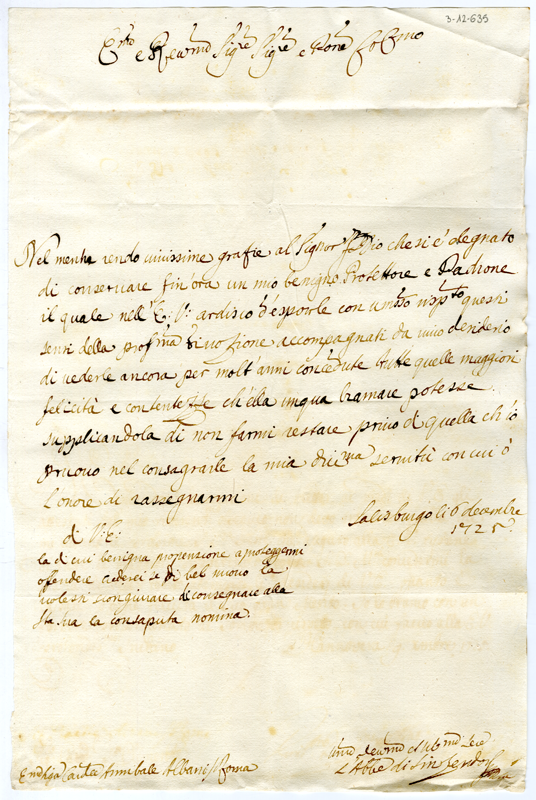 3-12-635
e Sig.re Sig.re e
Nel mentre rendo vivissime grazie al Signor Iddio che si è degnato
di conservare fin'ora un mio benigno Protettore e Padrone
il quale nell' E: V: ardisco d'esporle con questi
sensi della divozione accompagnati da vivo desiderio
di vederle ancora per molt'anni concedute tutte quelle maggiori
felicità e contentezze ch'ella unqua bramare potesse.
supplicandola di non farmi restare privo di quella ch'io
pruovo nel consagrarle la mia servitù con cui ò
L'onore di rassegnarmi
Salisburgo li 6 decembre
1725
di V: E:
la di cui benigna propensione a proteggermi
offendere crederei se di bel nuovo la
volessi scongiurare di consegnare alla
Sta. Sua la consaputa nomina.
Annibale Albani Roma
L'Abbe di Sinzendorf